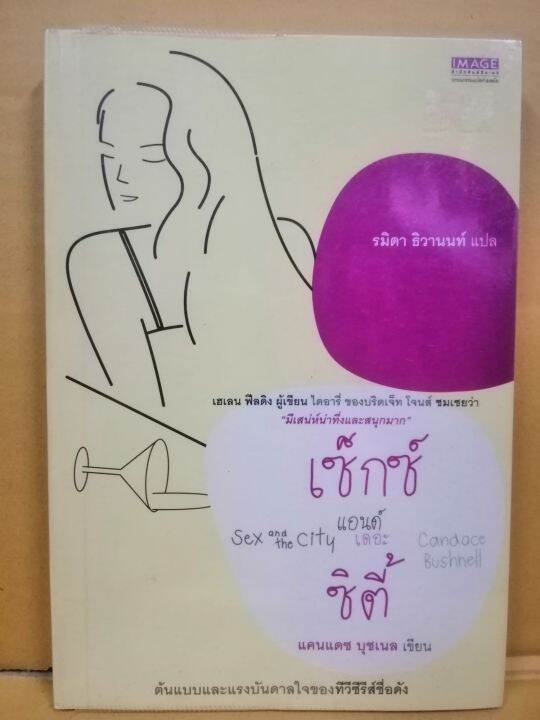 IMAGE
รมิดา ธิวานนท์ แปล
เฮเลน ฟีลดิง ผู้เขียน ไดอารี่ ของบริดเจ็ท โจนส์ ชมเชยว่า
"มีเสน่ห์น่าทึ่งและสนุกมาก"
เซ็กซ์
แอนด์
Sex and the City เดอะ Candace Bushnell
ซิตี้
แคนแดซ บุชเนล เขียน
ต้นแบบและแรงบันดาลใจของทีวีซีรีส์ชื่อดัง